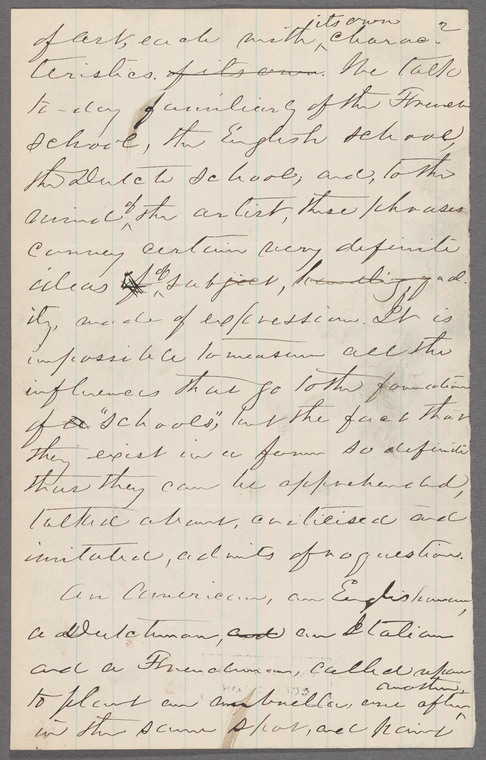 2
of art, each with its own charac-
teristics, of its own. We talk
to-day familiarly of the French
school, the English school,
the Dutch school; and, to the
mind of the artist, these phrases
convey certain very definite
ideas of of subject, handling, qual-
ity, mode of expression. It is
impossible to measure all the
influences that go to the formation
of a "schools", but the fact that
they exist in a form so definite
that they can be apprehended,
talked about, criticised and
imitated, admits of no question.
An American, an Englishman,
a Dutchman, and an Italian
and a Frenchman, called upon
to plant an umbrella, one after another,
in the same spot, and paint